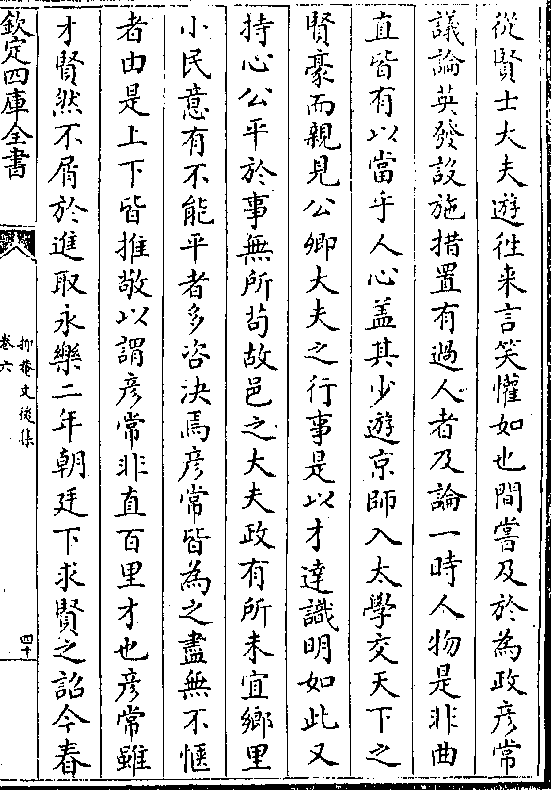 從賢士大夫遊往来言笑懽如也間嘗及於為政彦常
議論英發設施措置有過人者及論一時人物是非曲
直皆有以當乎人心盖其少遊京師入太學交天下之
賢豪而親見公卿大夫之行事是以才達識明如此又
持心公平於事無所茍故邑之大夫政有所未宜鄉里
小民意有不能平者多咨决焉彦常皆為之盡無不愜
者由是上下皆推敬以謂彦常非直百里才也彦常雖
才賢然不屑於進取永樂二年朝廷下求賢之詔今春
欽定四庫全書
抑菴文後集
卷六
四十